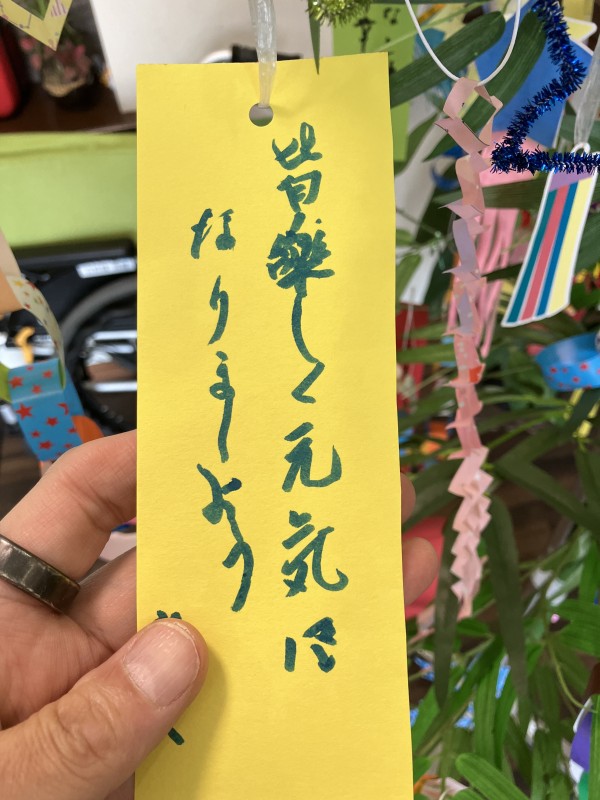 皆樂しく元気に
なりましよう